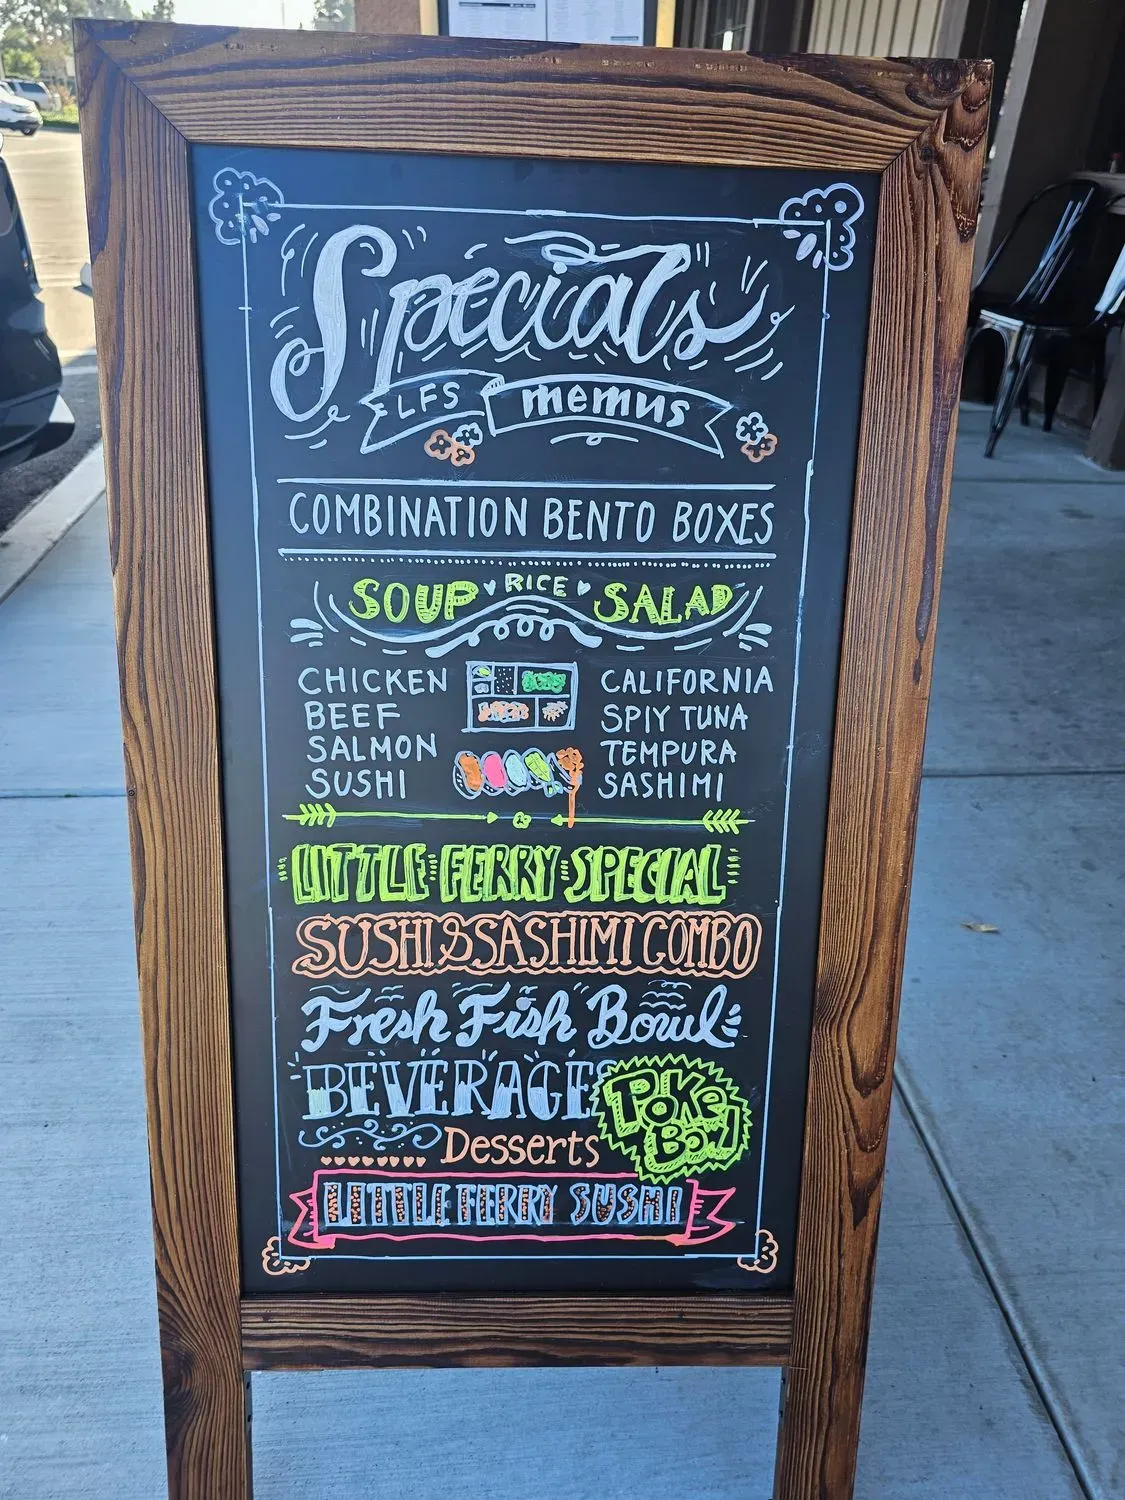 Specials
LFS memus
COMBINATION BENTO BOXES
SOUP RICE SALAD
CHICKEN CALIFORNIA
BEEF SPIY TUNA
SALMON TEMPURA
SUSHI SASHIMI
LITTLE FERRY SPECIAL
SUSHI & SASHIMI COMBO
Fresh Fish Bowl
BEVERAGES
POKe BOWl
Desserts
LITTLE FERRY SUSHI